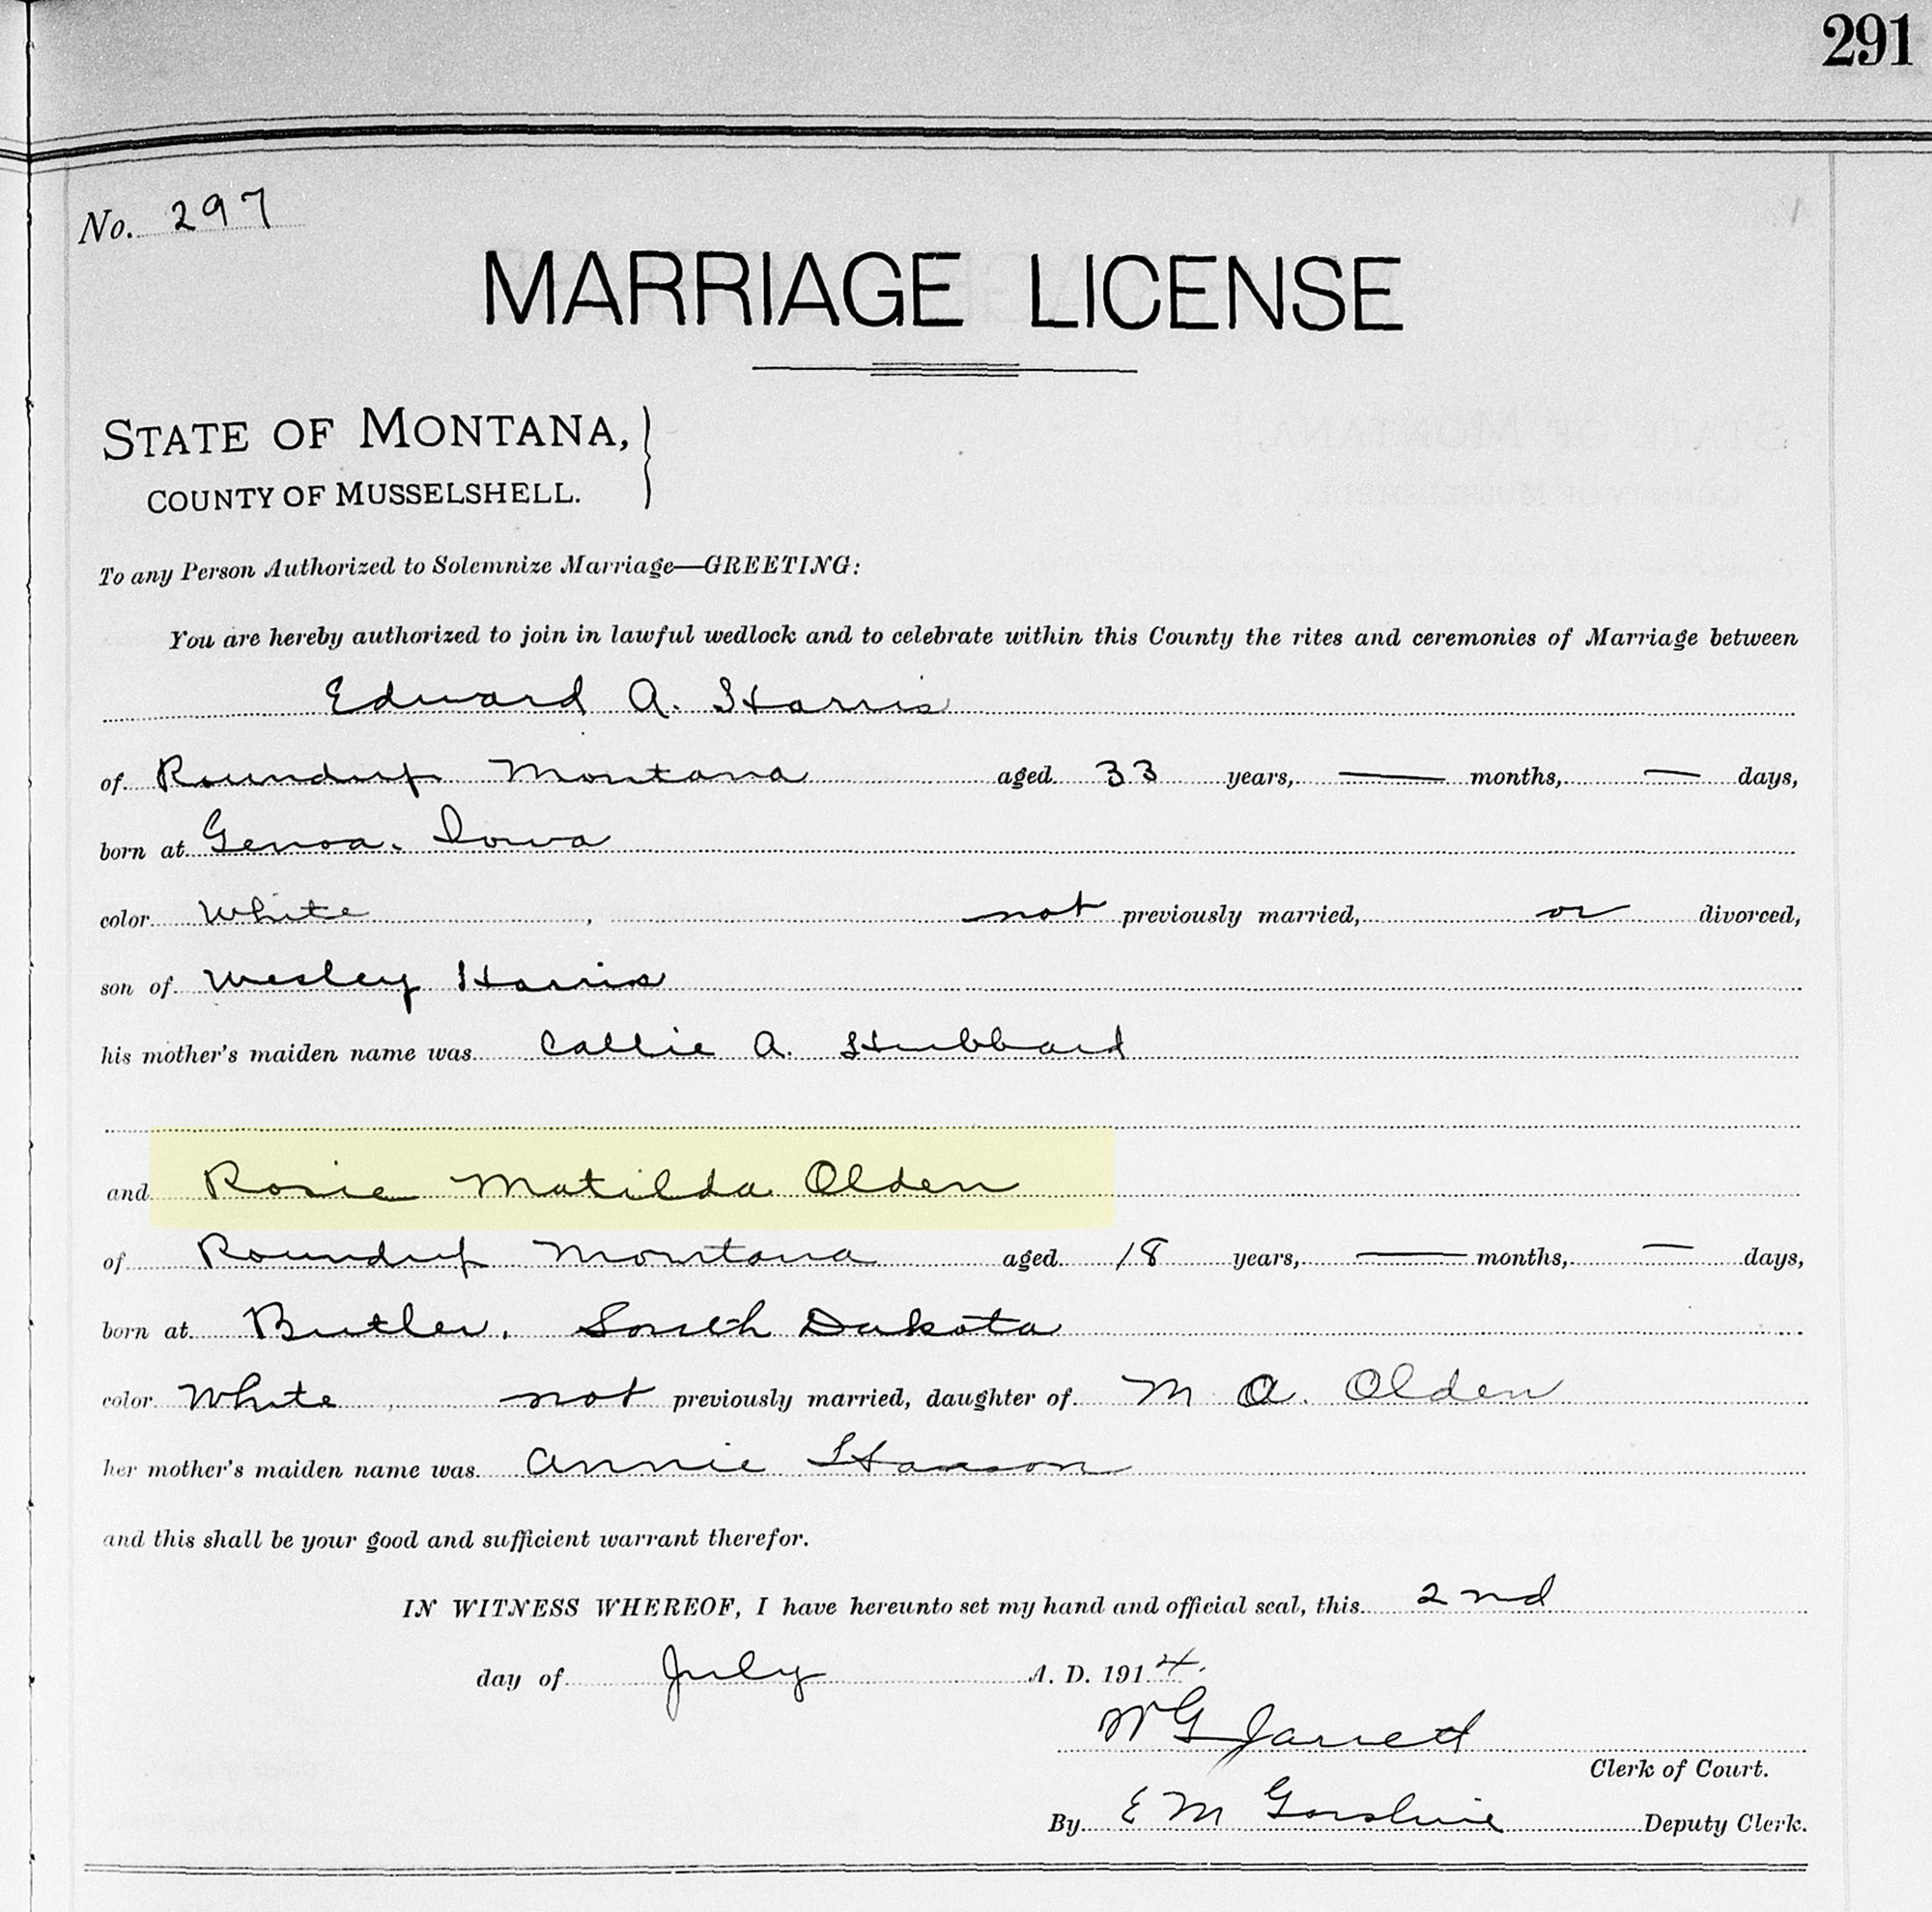 291
No. 297
MARRIAGE LICENSE
STATE OF MONTANA,
COUNTY OF MUSSELSHELL.
To any Person Authorized to Solemnize Marriage—GREETING:
You are hereby authorized to join in lawful wedlock and to celebrate within this County the rites and ceremonies of Marriage between
Edward A. Harris
of Roundup Montana aged 33 years, — months, — days,
born at Genoa. Iowa
color White , not previously married, or divorced,
son of Wesley Harris
his mother's maiden name was Callie A. Hubbard
and Rosie Matilda Olden
of Roundup Montana aged 18 years, — months, — days,
born at Butler, South Dakota
color White , not previously married, daughter of M A. Olden
her mother's maiden name was Annie
and this shall be your good and sufficient warrant therefor.
IN WITNESS WHEREOF, I have hereunto set my hand and official seal, this 2nd
day of July A. D. 1914.
W G Jarrett
Clerk of Court.
By E M Deputy Clerk.